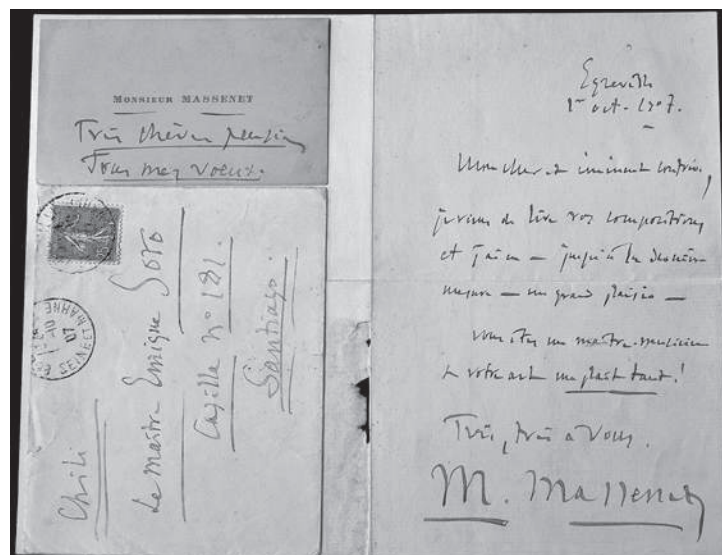 MONSIEUR MASSENET
Très chère pensée
Tous mes voeux.
Chili
Le maître Enrique Soro
Casilla n° 181.
Santiago.
SEINE ET MARNE
07
Egreville
1er oct. 1907.
Mon cher et éminent confrère,
je viens de lire vos compositions
et j'ai eu — jusqu'à la dernière
mesure — un grand plaisir —
vous êtes un maître-musicien
& votre art me plaît tant!
Très, très à vous.
M. Massenet